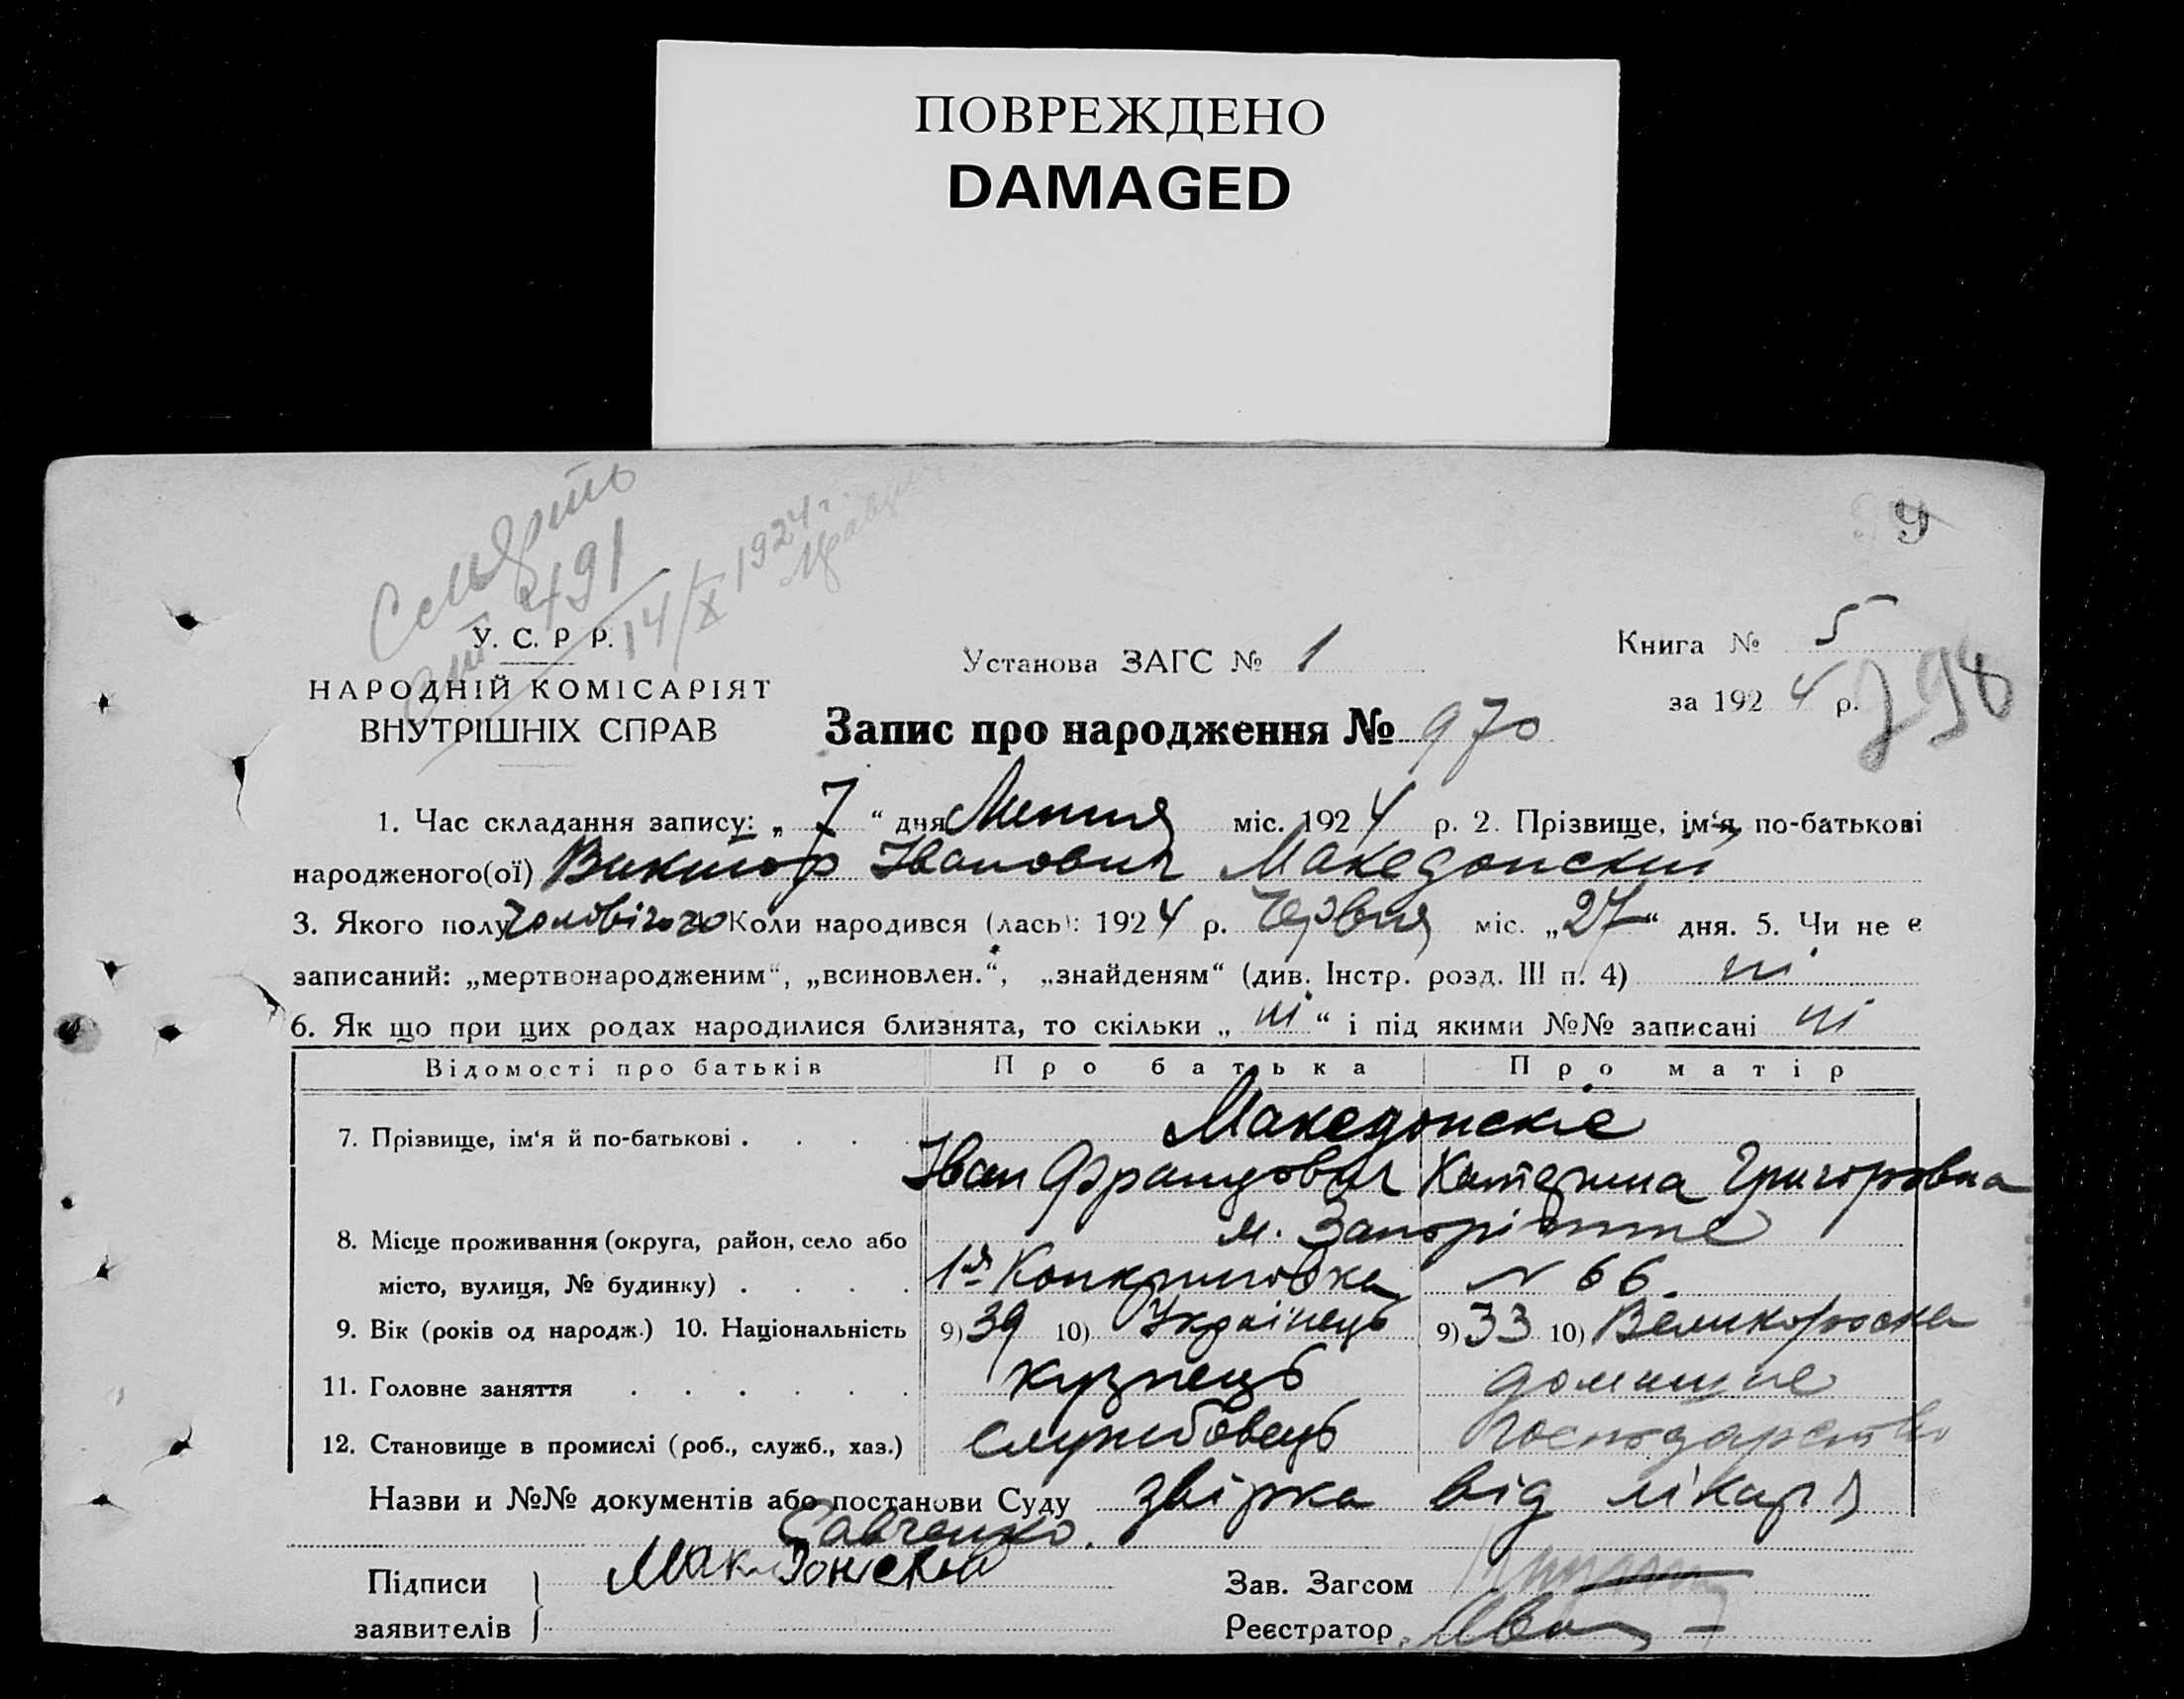 ПОВРЕЖДЕНО
DAMAGED
Смерть
акт 491
14/X 1924 г.
9
У. С. Р. Р.
НАРОДНІЙ КОМІСАРІЯТ
ВНУТРІШНІХ СПРАВ
Установа ЗАГС № 1
Книга № 5
за 1924 р.
798
Запис про народження № 970
1. Час складання запису: „ 7 “ дня Липня міс. 1924 р. 2. Прізвище, ім‘я, по-батькові
народженого(ої) Виктор Іванович Македонский
3. Якого полу чоловічого Коли народився (лась): 1924 р. Червня міс. „27“ дня. 5. Чи не є
записаний: „мертвонародженим“, „всиновлен.“, „знайденям“ (див. Інстр. розд. III п. 4) ні
6. Як що при цих родах народилися близнята, то скільки „ ні “ і під якими №№ записані ні
Відомості про батьків Про батька Про матір
7. Прізвище, ім‘я й по-батькові . . . . Македонские
Іван Францович Катерина Григоровна
8. Місце проживання (округа, район, село або м. Запоріжже
місто, вулиця, № будинку) . . . . 1ая Конкриновка № 66.
9. Вік (років од народж.) 10. Національність 9) 39 10) Українець 9) 33 10) Великороска
11. Головне заняття . . . . . . кузнець домашнє
12. Становище в промислі (роб., служб., хаз.) службовець господарство
Назви и №№ документів або постанови Суду звірка від лікаря
Савченко.
Підписи Македонский
заявителів
Зав. Загсом
Реєстратор